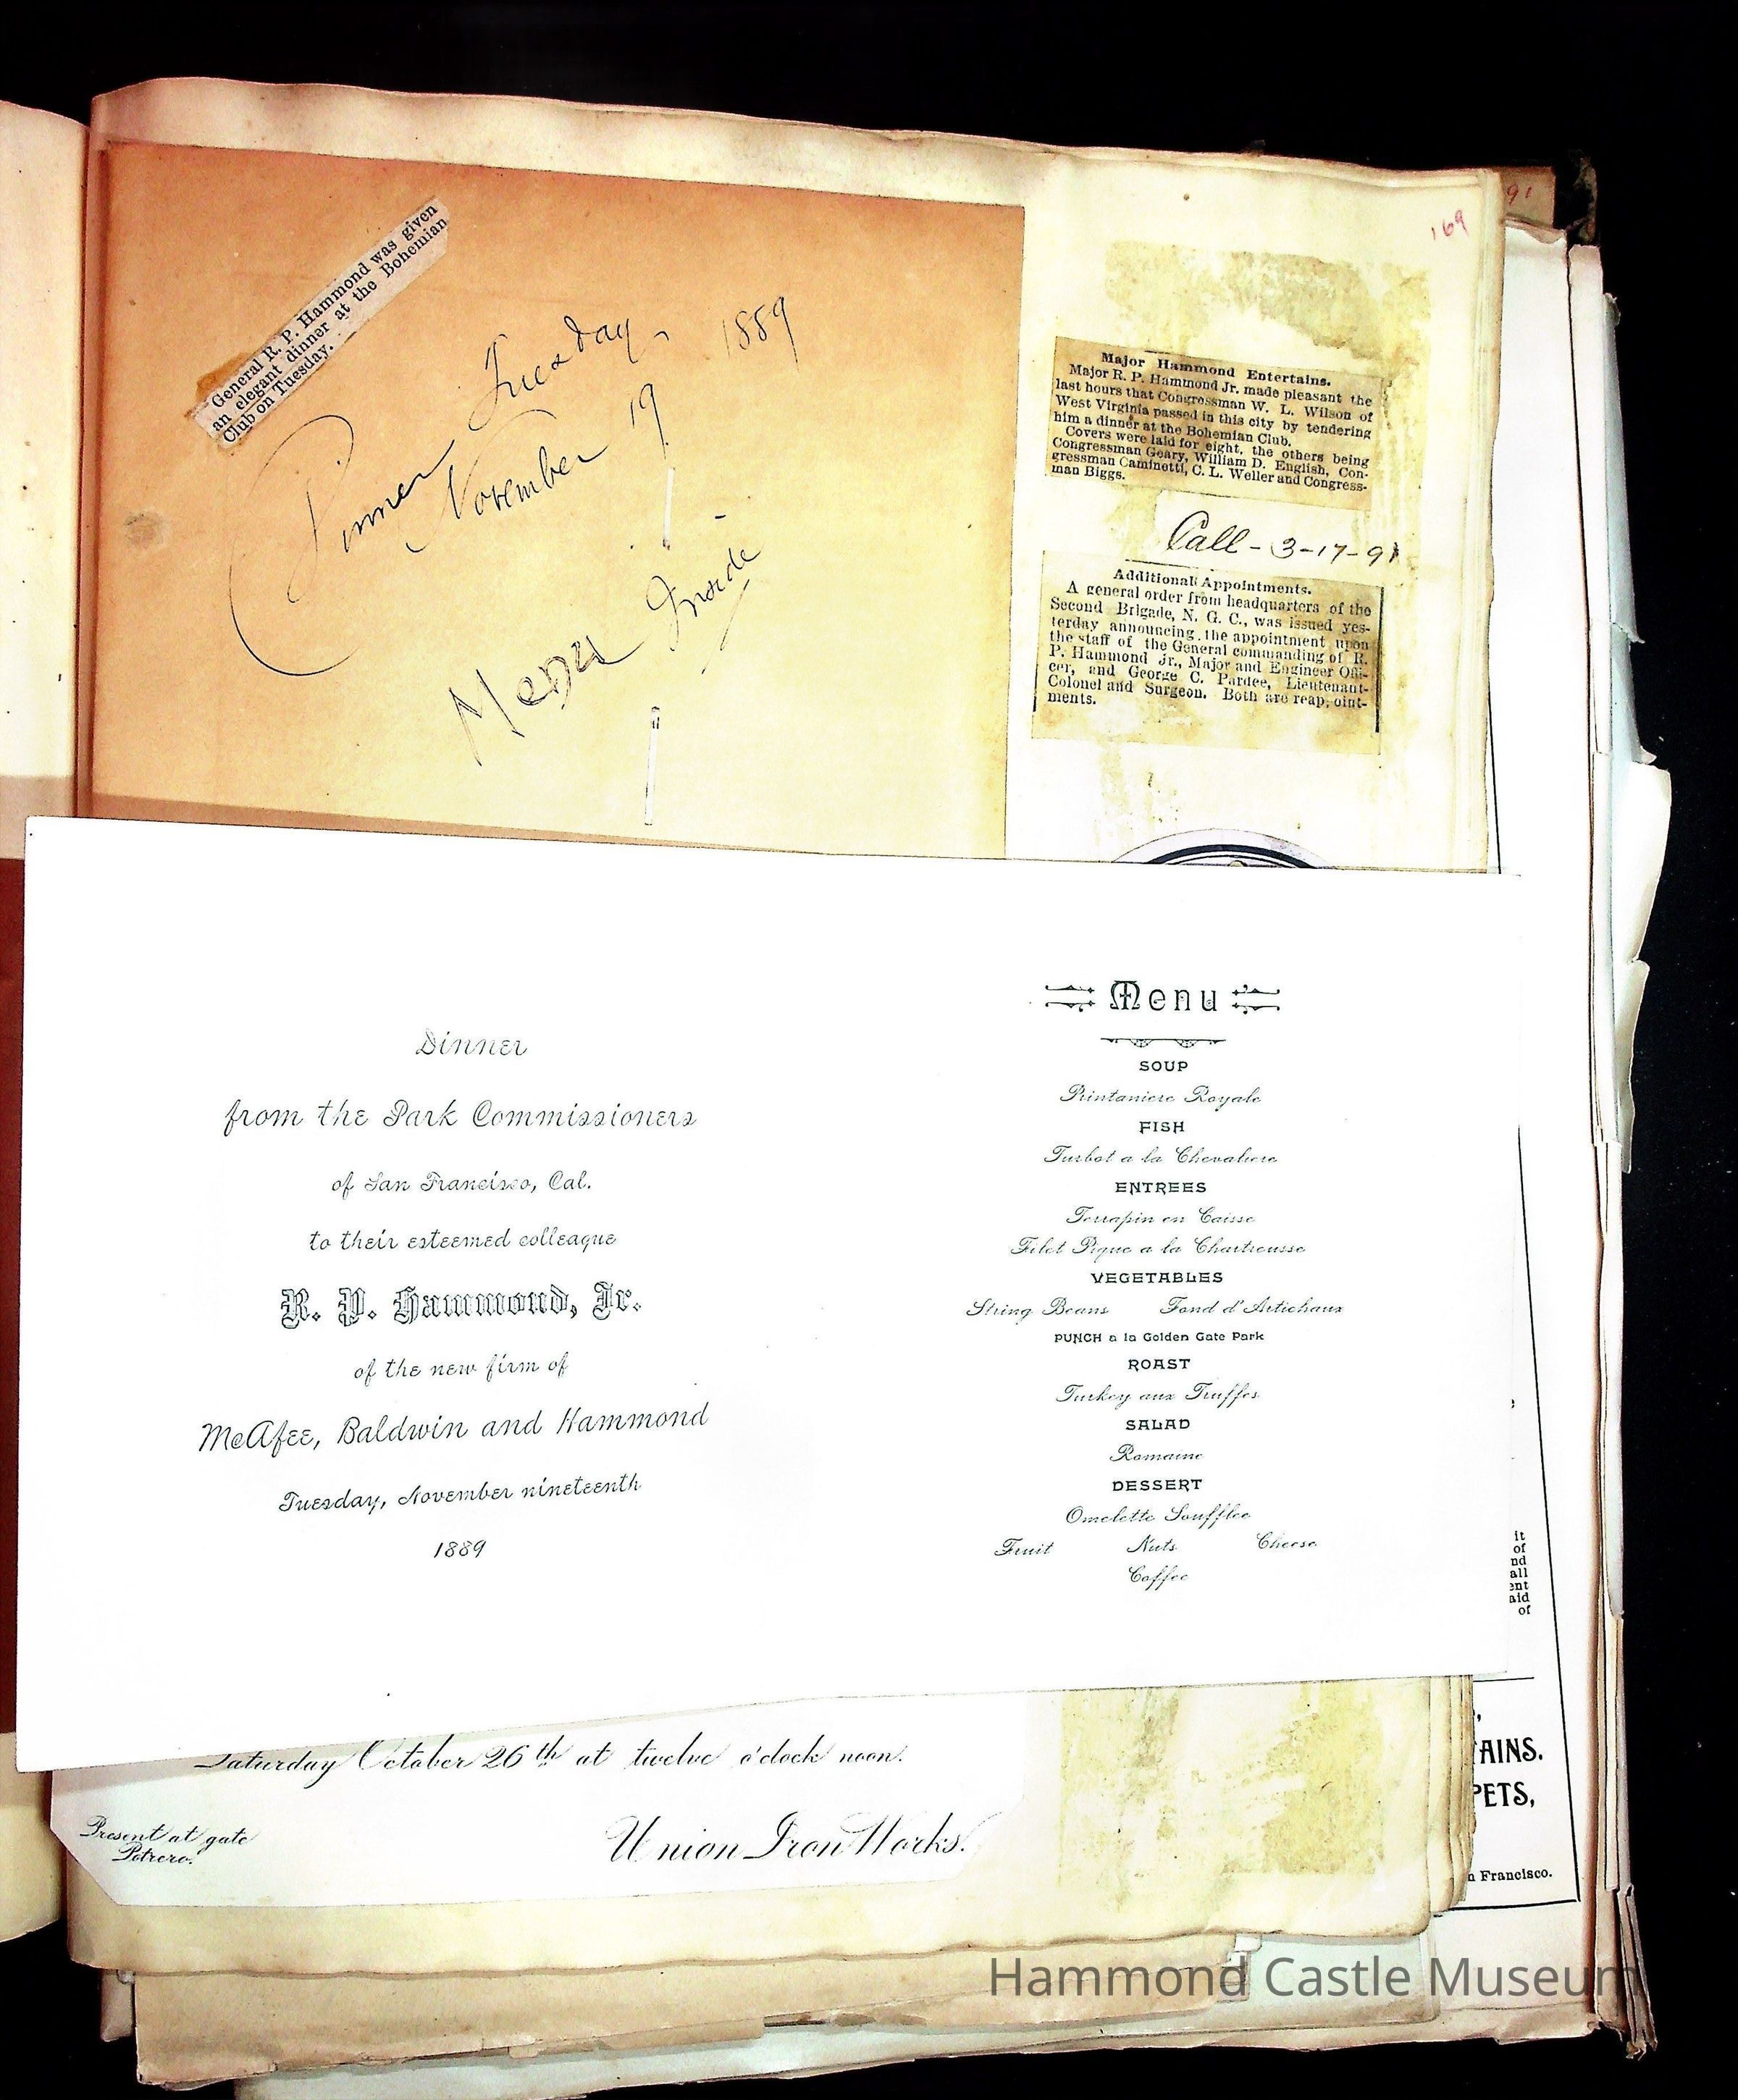 General R. P. Hammond was given
an elegant dinner at the Bohemian
Club on Tuesday.
Dinner Tuesday, 1889
November 19
Menu Inside
91
169
Major Hammond Entertains.
Major R. P. Hammond Jr. made pleasant the
last hours that Congressman W. L. Wilson of
West Virginia passed in this city by tendering
him a dinner at the Bohemian Club.
Covers were laid for eight, the others being
Congressman Geary, William D. English, Con-
gressman Caminetti, C. L. Weller and Congress-
man Biggs.
Call - 3-17-91
Additional Appointments.
A general order from headquarters of the
Second Brigade, N. G. C., was issued yes-
terday announcing the appointment upon
the staff of the General commanding of R.
P. Hammond Jr., Major and Engineer Offi-
cer, and George C. Pardee, Lieutenant-
Colonel and Surgeon. Both are reappoint-
ments.
Dinner
from the Park Commissioners
of San Francisco, Cal.
to their esteemed colleague
R. P. Hammond, Jr.
of the new firm of
McAfee, Baldwin and Hammond
Tuesday, November nineteenth
1889
Menu
SOUP
Printaniere Royale
FISH
Turbot a la Chevaliere
ENTREES
Terrapin en Caisse
Filet Pique a la Chartreusse
VEGETABLES
String Beans Fond d'Artichaux
PUNCH a la Golden Gate Park
ROAST
Turkey aux Truffes
SALAD
Romaine
DESSERT
Omelette Soufflee
Fruit Nuts Cheese
Coffee
it
of
nd
all
ent
aid
of
Saturday October 26th at twelve o'clock noon.
Present at gate
Potrero.
Union Iron Works.
AINS.
PETS,
n Francisco.
Hammond Castle Museum